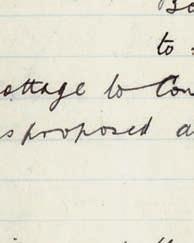 to
ottage to Con
s proposed a